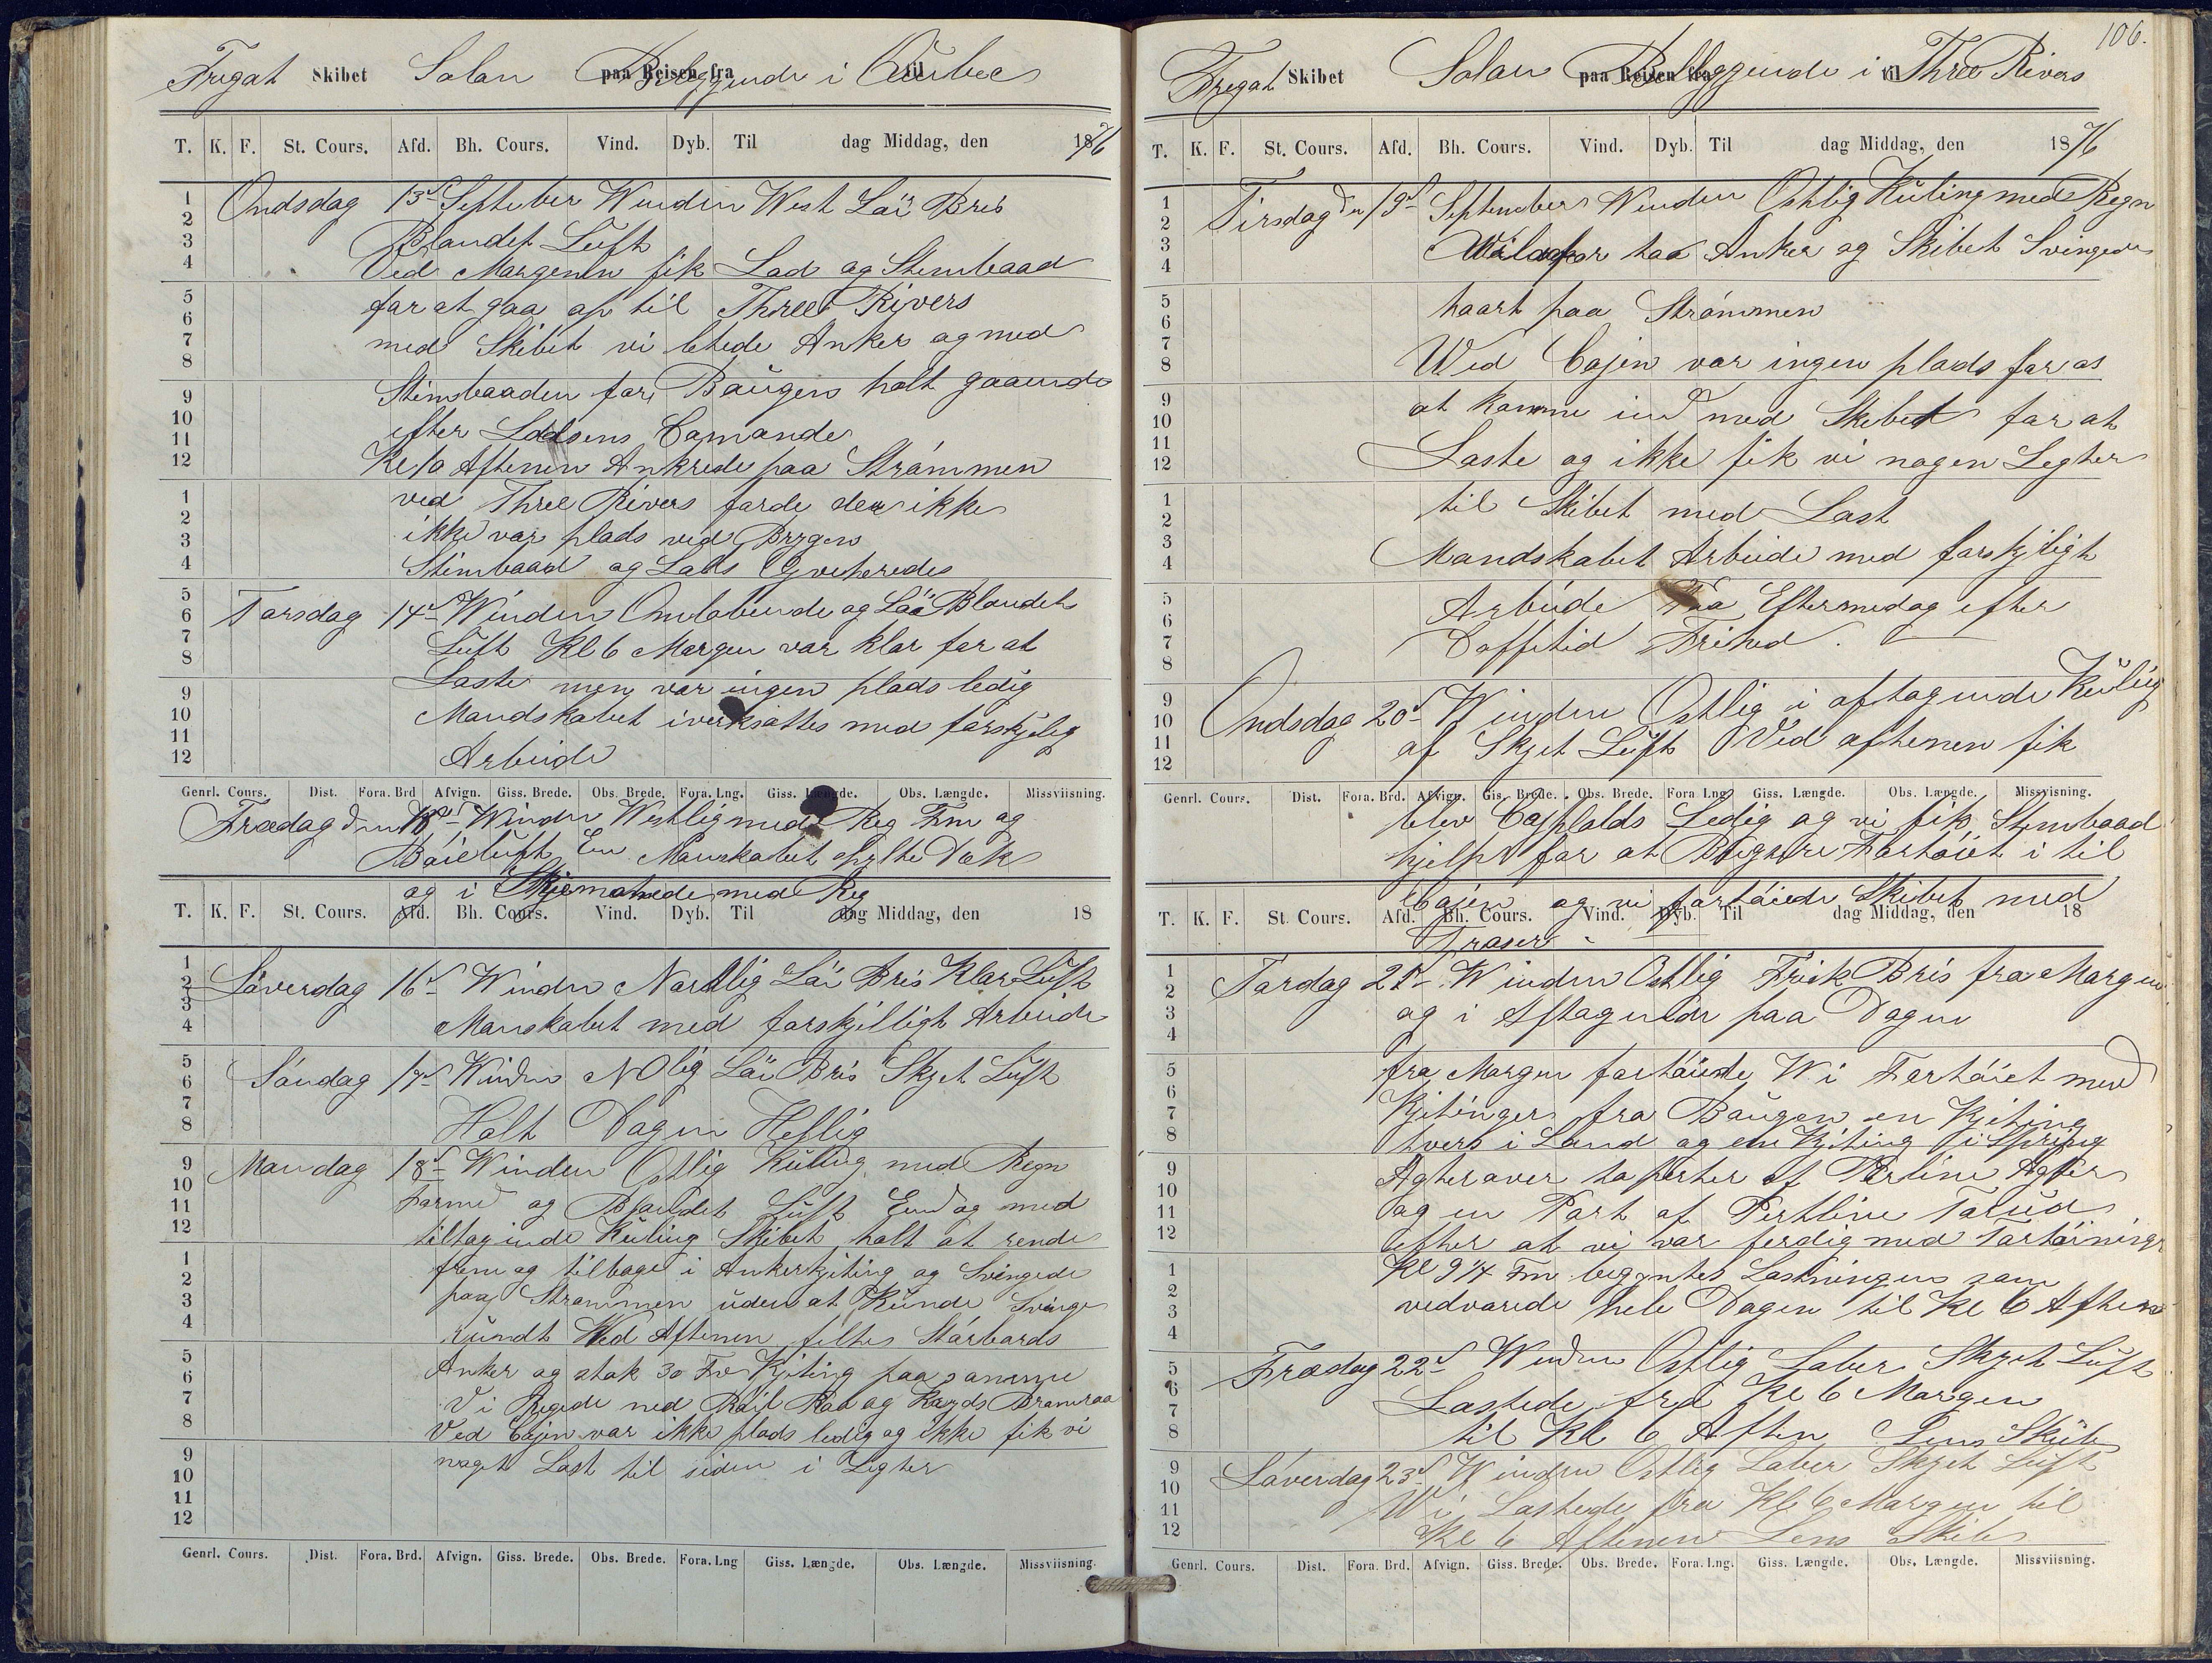 Fregat Skibet Solan paa Reisen fra Beliggende i til Quebec
T. K. F. St. Cours. Afd. Bh. Cours. Vind. Dyb. Til dag Middag, den 1876
Ondsdag 13d Septeber Winden West Laï Bris
Blandet Luft
Ved Margenen fik Lods og Stembaad
for at gaa op til Three Rivers
med Skibet vi letede Anker og med
Stimbaaden for Baugen halt gaaende
efter Lodsens Comando
Kl 10 Aftenen Ankrede paa Strømmen
ved Three Rivers forde der ikke
ikke var plads ved Brygen
Stimbaad og Lods Qviterede
Torsdag 14d Winden Omløbende og Laï Blandet
Luft Kl 6 Morgen var klar for at
Laste men var ingen plads ledig
Mandskabet iverksattes med forskjelig
Arbeide
Genrl. Cours. Dist. Fora. Brd Afvign. Giss. Brede. Obs. Brede. Fora. Lng. Giss. Længde. Obs. Længde. Missviisning.
Fredag den 15d Winden Westlig med Reg Fm og
Böieluft Em Manskabet spylte Dæk
og i Skjematede med Reg
T. K. F. St. Cours. Afd. Bh. Cours. Vind. Dyb. Til dag Middag, den 18
Löverdag 16d Winden Nordlig Laï Bris Klar Luft
Manskabet med forskjelligt Arbeide
Søndag 17d Winden NOlig Laï Bris Skyet Luft
Halt Dagen Hellig
Mandag 18d Winden Ostlig Kuling med Regn
Formd og Blandet Luft Emd og med
tiltagende Kuling Skibet halt at rende
frem og tilbage i Ankerkjeting og Svingede
paa Strømmen uden at Kunde Svinge
rundt Ved Aftenen feltes Stórbords
Anker og stak 30 Fv Kjeting paa samme
Vi Regede ned Röil Raa og Kryds Bramraa
Ved Cajen var ikke plads ledig og ikke fik vi
noget Last til siden i Legter
Genrl. Cours. Dist. Fora. Brd. Afvign. Giss. Brede. Obs. Brede. Fora. Lng Giss. Længde. Obs. Længde. Missviisning.
106.
Fregat Skibet Solan paa Reisen fra Beliggende i til Three Rivers
T. K. F. St. Cours. Afd. Bh. Cours. Vind. Dyb. Til dag Middag, den 1876
Tirsdag den 19d September Winden Ostlig Kuling med Regn
for toa Anker og Skibet Svingede
haart paa Strømmen
Wed Cajen var ingen plads for os
at komme ind med Skibet for at
Laste og ikke fik vi nogen Legter
til Skibet med Last
Mandskabet Arbeide med forskjeligt
Arbeide Eftermedag efter
Doffetid Frihed.
Ondsdag 20d Winden Ostlig i aftagende Kulig
af Skyet Luft Ved aftenen fik
Genrl. Cours. Dist. Fora. Brd. Afvign. Gis. Brede. Obs. Brede. Fora. Lng Giss. Længde. Obs. Længde. Missvisning.
blev Cajplads Ledig og vi fik Stembaad
hjelp for at Fartöiet i til
Cajen og vi fortóiede Skibet med
T. K. F. St. Cours. Afd. Bh. Cours. Vind. Dyb. Til dag Middag, den 18
Traser
Tordag 21d Winden Ostlig Frisk Bris fra Morgen
og i Aftagende paa Dagen
fra Morgen fortöiede Wi Fartöiet med
Kjetinger fra Baugen en Kjeting
tvers i Land og en Kjeting i Spring
Agteraver to parter af Perline Agter
og en Part af Pertline Forud
efter at vi var ferdig med Fortöining
Kl 9 1/4 Fm begyntes Lastningen som
vedvarede hele Dagen til Kl 6 Aften
Fredag 22d Winden Ostlig Laber Skyet Luft
Lastede fra Kl 6 Morgen
til Kl 6 Aften Lens Skib
Löverdag 23d Winden Ostlig Laber Skyet Luft
Wi Lastede fra Kl 6 Morgen til
Kl 6 Aftenen Lens Skib
Genrl. Cours. Dist. Fora. Brd. Afvign. Giss. Brede. Obs. Brede. Fora. Lng. Giss. Længde. Obs. Længde. Missvisning.